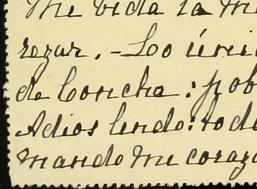 mi vida la me
rezar. - Lo úni
de Concha: pob
Adios lindo: todo
mando mi corazo